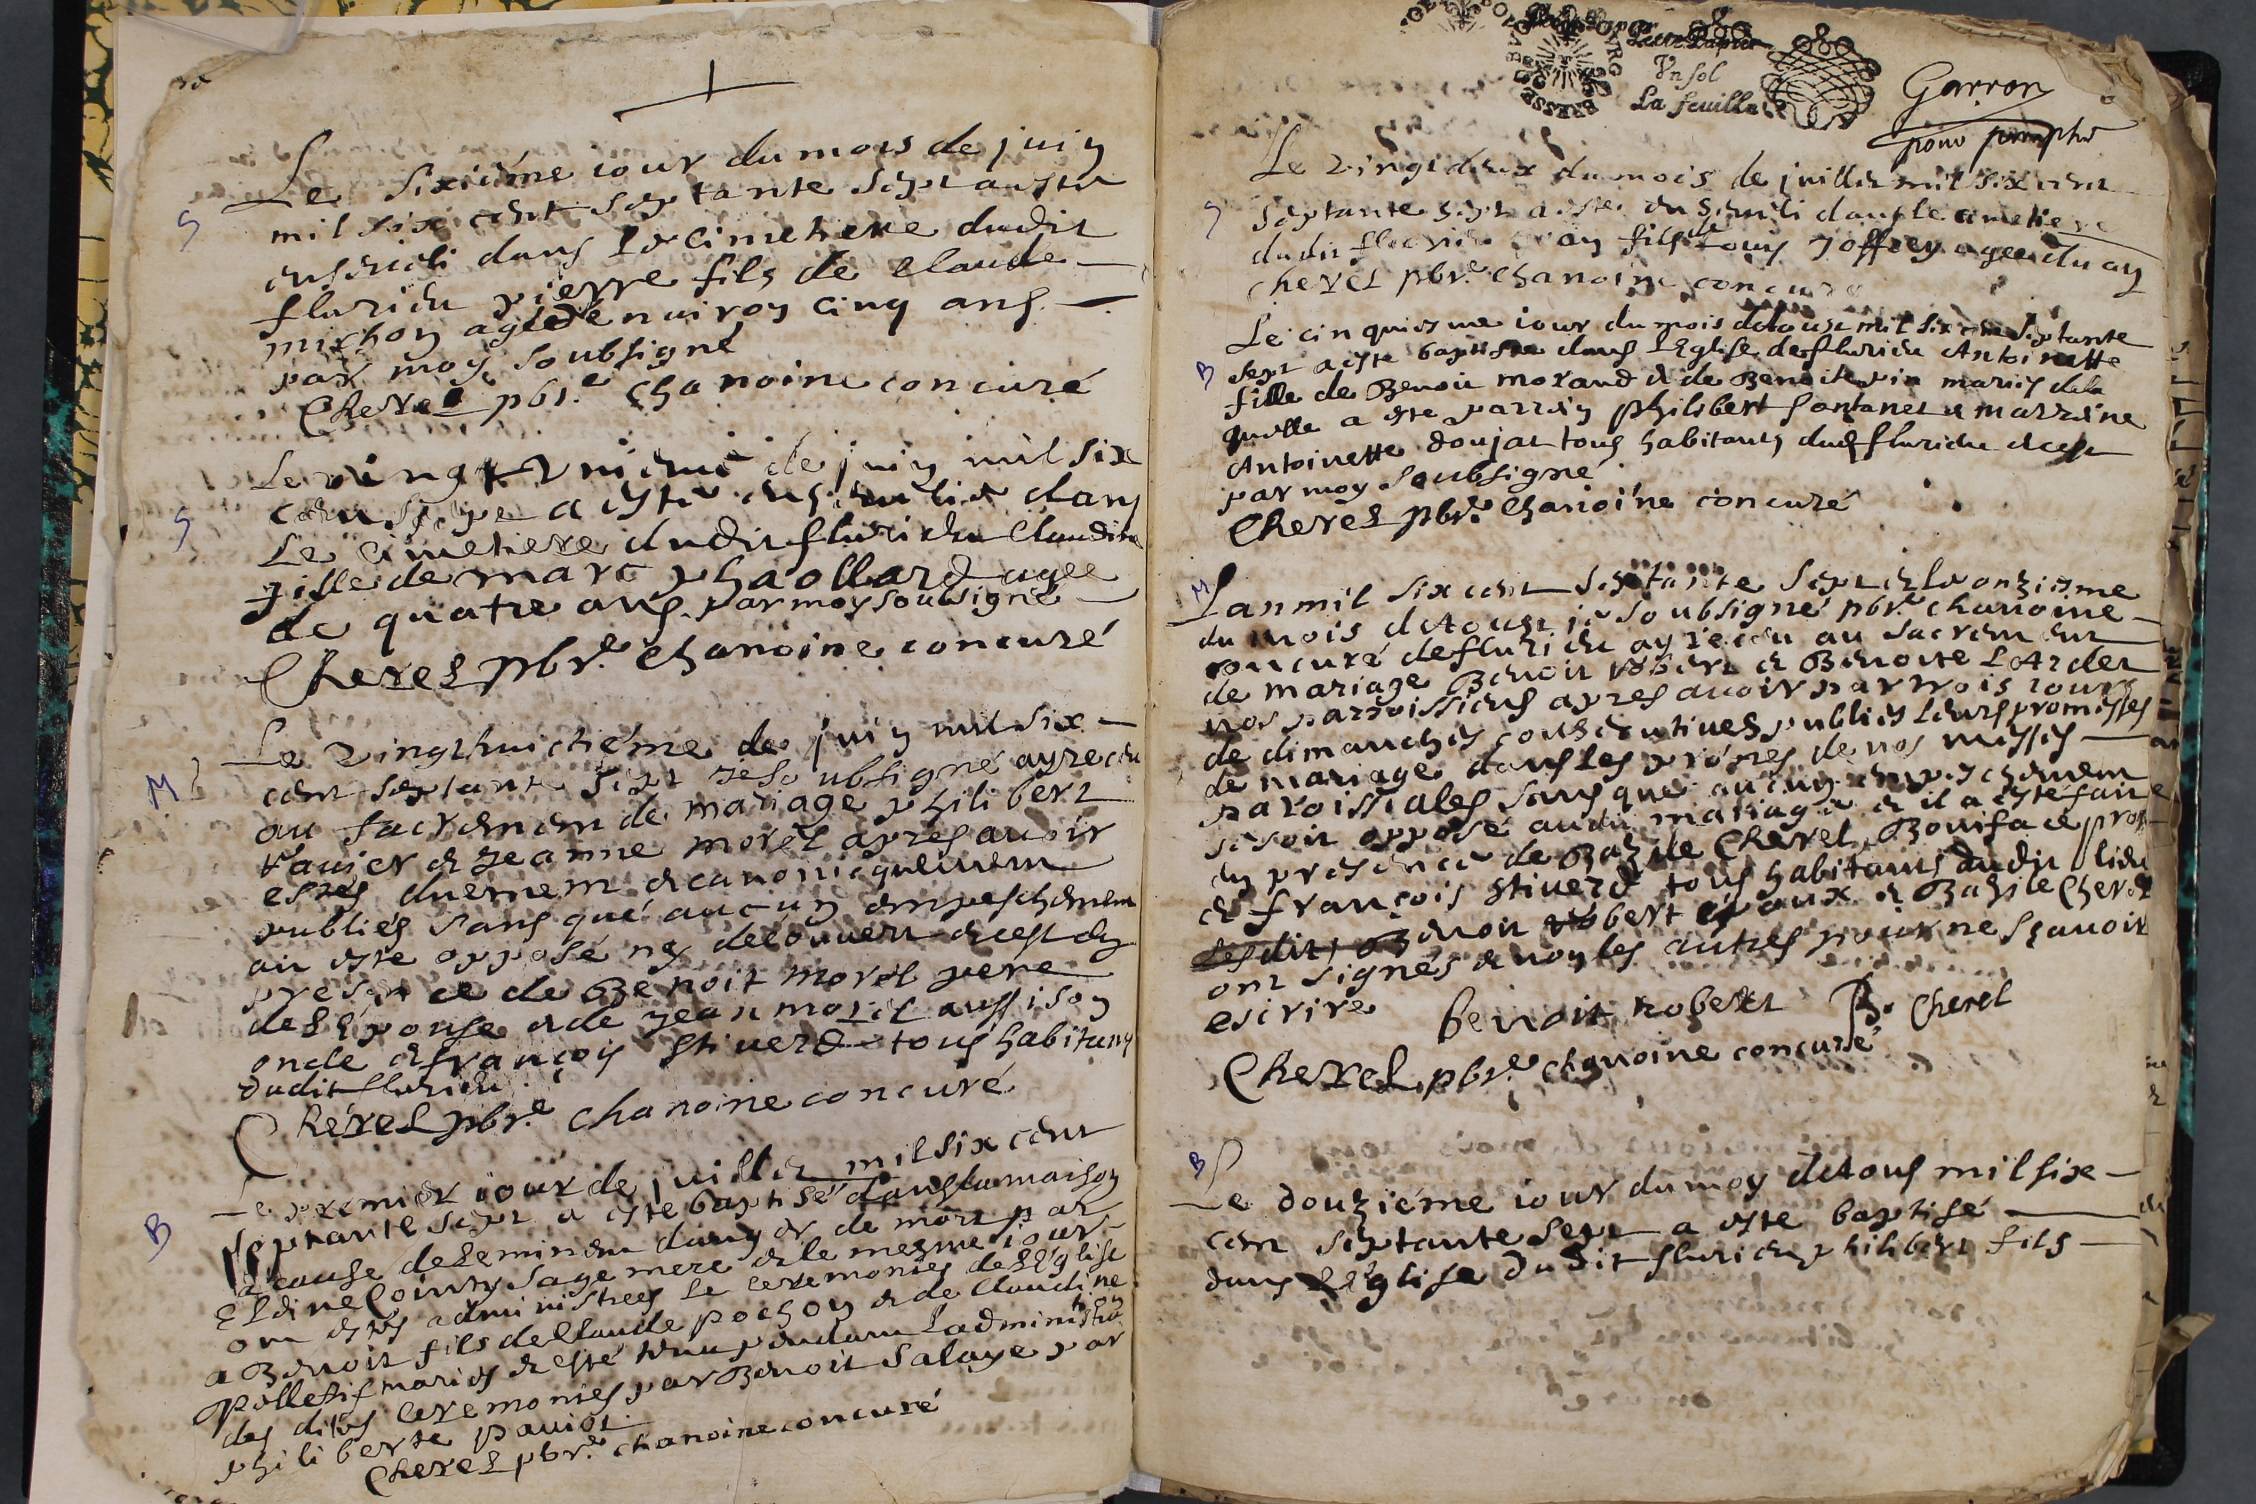 S
Le sixiéme iour du mois de juin
mil six cent septante sept a esté
enseueli dans le cimetiere dudit
flurieu pierre fils de claude
michon agé denuiron cinq ans
par moy soubsigné
Cherel pbre chanoine concuré
S
Le vingt de juin mil six
cent a esté enseuelie dans
Le cimetiere dudit flurieu Claudine
fille de marc agee
de quatre ans par moy soubsigné
Cherel pbre chanoine concuré
M
Le vingthuictiéme de juin mil six
cent septante sept ie soubsigné ay receu
au sacrement de mariage philibert
et Jeanne morel apres auoir
estés duement et canoniquement
publiés sans que aucun empeschement
an este opposé ny decouuert et cest en
presence de Benoit morel pere
de l'éponse et de jean morel aussi son
oncle et françois tous habitans
dudit flurieu
Cherel pbre chanoine concuré
B
Le premier iour de juillet mil six cent
septante sept a esté baptisé dans la maison
a cause de leminent danger de mort par
sage mere et le mesme iour
ont estés administrees le ceremonies de l'église
a Benoit fils de Claude pochon et de claudine
mariés et esté tenu pendant l'administration
des dites ceremonies par Benoit Salaye par
philiberte
Cherel pbre chanoine concuré
Un sol
La feuille
Garron
S
Le vingt deux du mois de juillet mil six cent
septante sept a este enseueli dans le cimetiere
dudit flurieu fils de Joffrey agee du an
cherel pbre chanoine concuré
B
Le cinquiesme iour du mois detoust mil six cent septante
sept a este baptisee dans l'Eglise de flurieu Antoinette
fille de Benoit morand et de Benoite mariés de la
quelle a este parrain philibert fontanel et marraine
Antoinette doujat tous habitants dud flurieu et cest
par moy soubsigné
Cherel pbre chanoine concuré
M
Lan mil six cent septante sept et le onziesme
du mois detoust ie soubsigné pbre chanoine
concuré de flurieu ay receu au sacrement
de mariage Benoit robert et Benoite
nos parroissiens apres auoir par trois iours
de dimanches consecutiues publiés leurs promesses
de mariage dans les prónes de nos messes
paroissiales sans que aucun empeschement
se soit opposé audit mariage et il a esté fait
en presence de Bazile Cherel Boniface
et françois tous habitans dudit lieu
Benoit robert et Bazile Cherel
ont signés et non les autres pour ne sçauoir
escrire Benoit robert B. Cherel
Cherel pbre chanoine concuré
B
Le douziéme iour du moy detous mil six
cent septante sept a este baptisé
dans l'Eglise dudit flurieu philibert fils